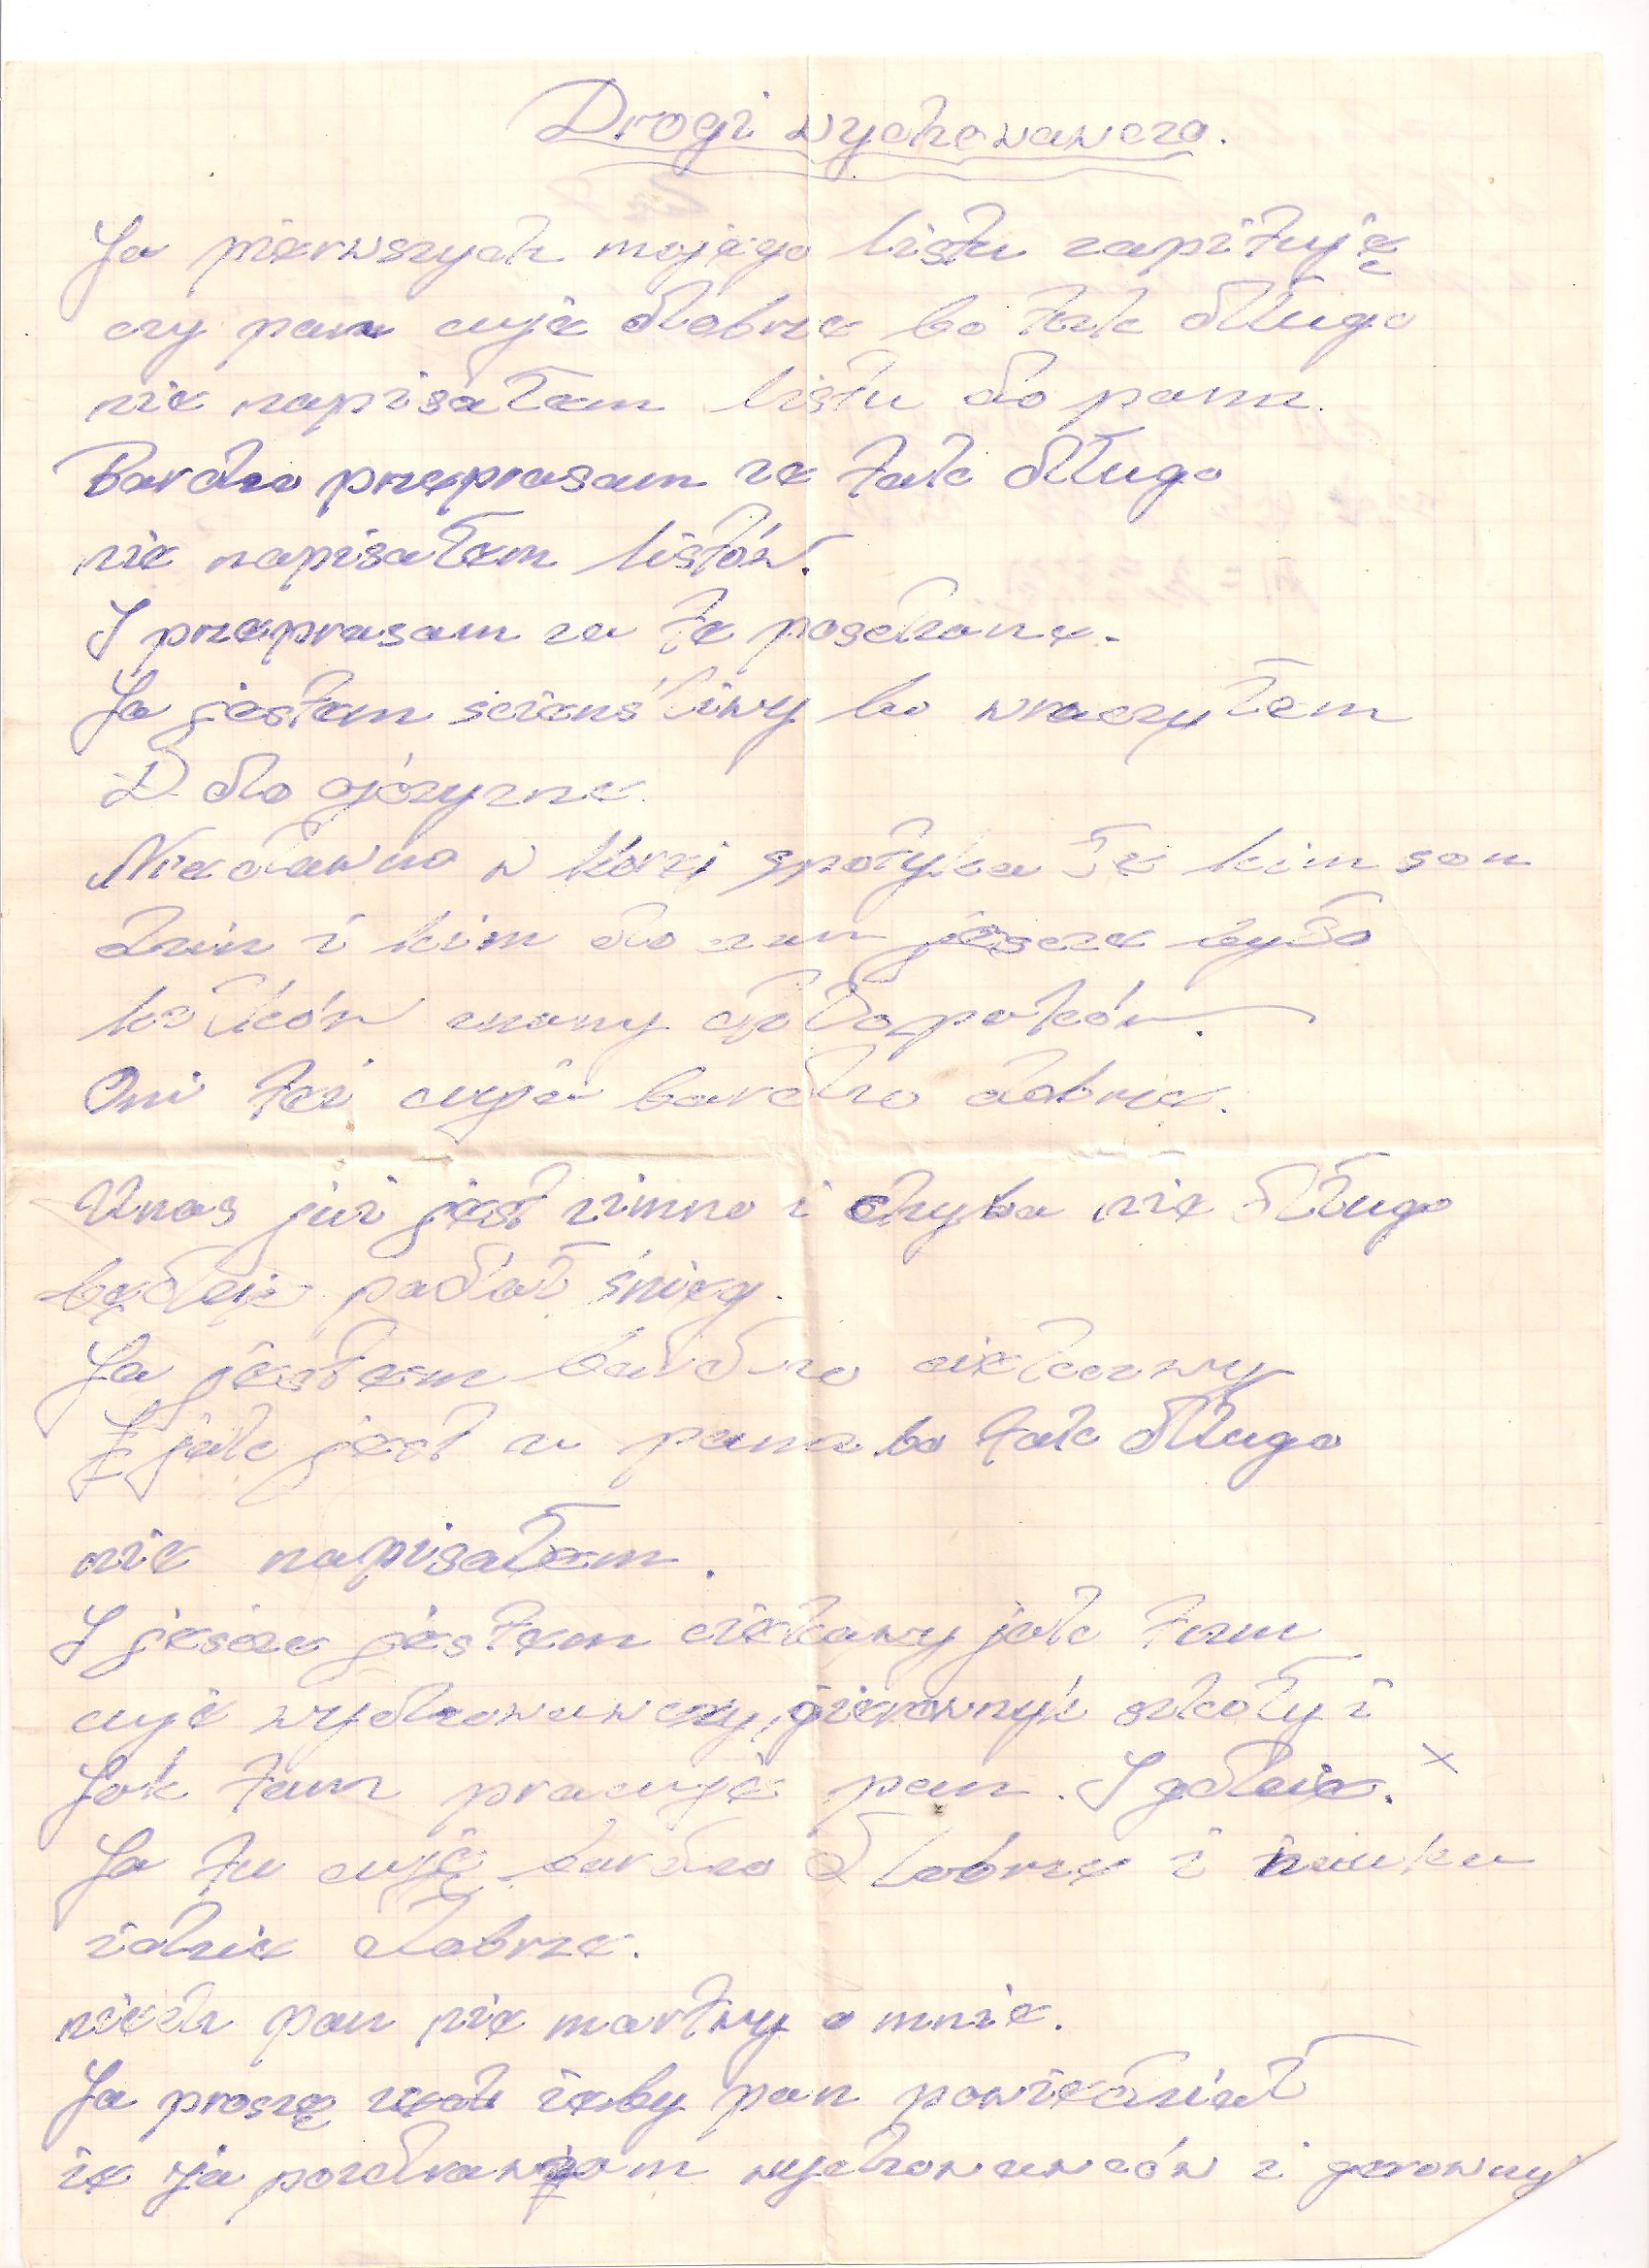 Drogi wychowawczo.
Ja pierwszych mojego listu zapituję
czy pan cuje dobrze bo tak długo
nie napisałem listu do pana.
Bardzo przeprasam ze tak długo
nie napisałem listów.
I przeprasam za te
Ja jestem scienśliwy bo wraczyłem
D do ojczyzne.
Niedawno w Korzi spotyka łe kim son
dzin i kim do zan jescze było
kilków znany chłopaków.
Oni też cuje bardzo dobrze.
Unas już jest zimno i chyba nie długo
będzie padał śnieg.
Ja jestem bardzo ciekawy
I jak jest u pana bo tak długo
nie napisałem.
I jescze jestem ciekawy jak tam
cuje wychowawczy, gierownyk szkoły i
Jak tam pracuje pan. I gdzie. x
Ja tu cuję bardzo dobrze i nauka
idzie dobrze.
niech pan nie martwy o mnie.
Ja proszę żeby pan powiedział
że ja pozdrawjam wychowawców i gerowny